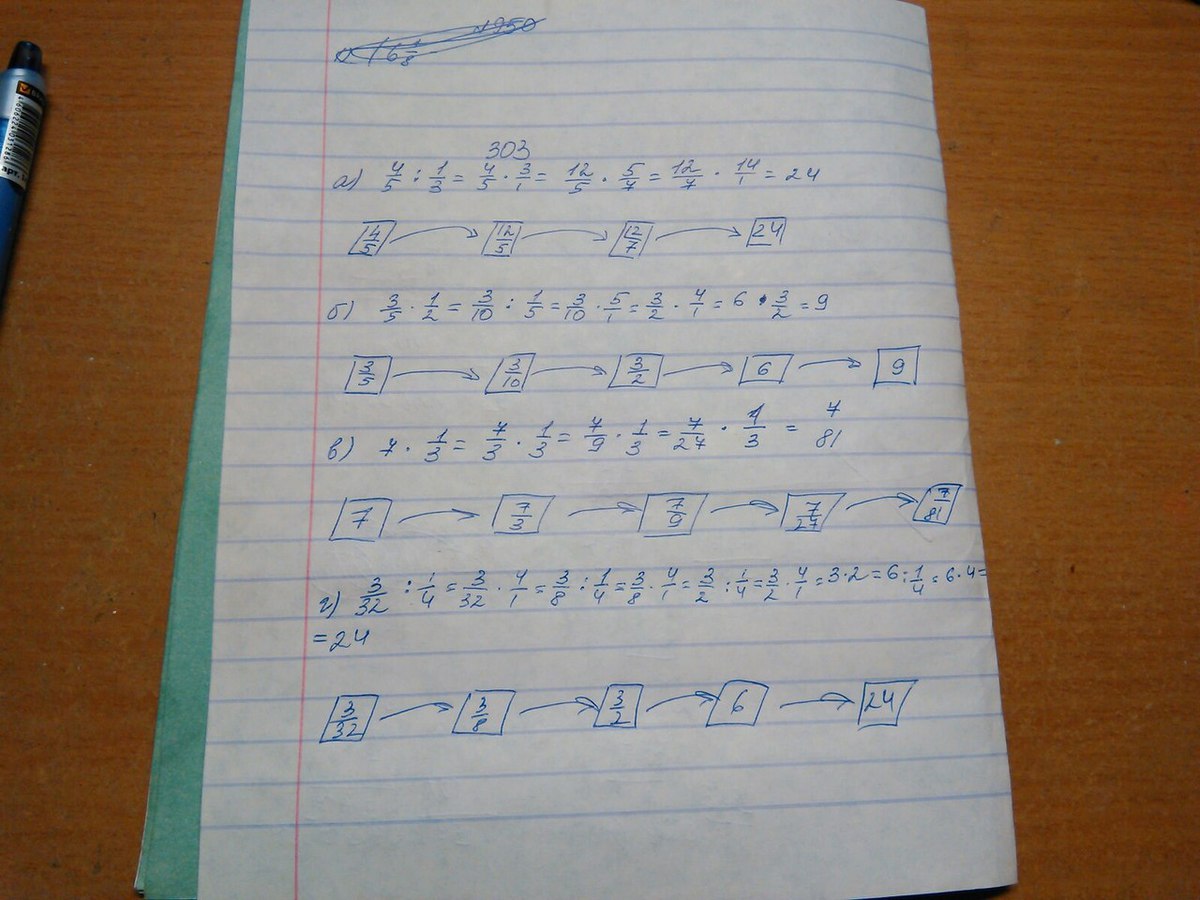 1950
303
а) 4/5 : 1/3 = 4/5 · 3/1 = 12/5 · 5/7 = 12/7 · 14/1 = 24
4/5 → 12/5 → 12/7 → 24
б) 3/5 · 1/2 = 3/10 : 1/5 = 3/10 · 5/1 = 3/2 · 4/1 = 6 · 3/2 = 9
3/5 → 3/10 → 3/2 → 6 → 9
в) 7 · 1/3 = 7/3 · 1/3 = 7/9 · 1/3 = 7/27 · 1/3 = 7/81
7 → 7/3 → 7/9 → 7/27 → 7/81
г) 3/32 : 1/4 = 3/32 · 4/1 = 3/8 : 1/4 = 3/8 · 4/1 = 3/2 : 1/4 = 3/2 · 4/1 = 3·2 = 6 : 1/4 = 6·4 =
= 24
3/32 → 3/8 → 3/2 → 6 → 24